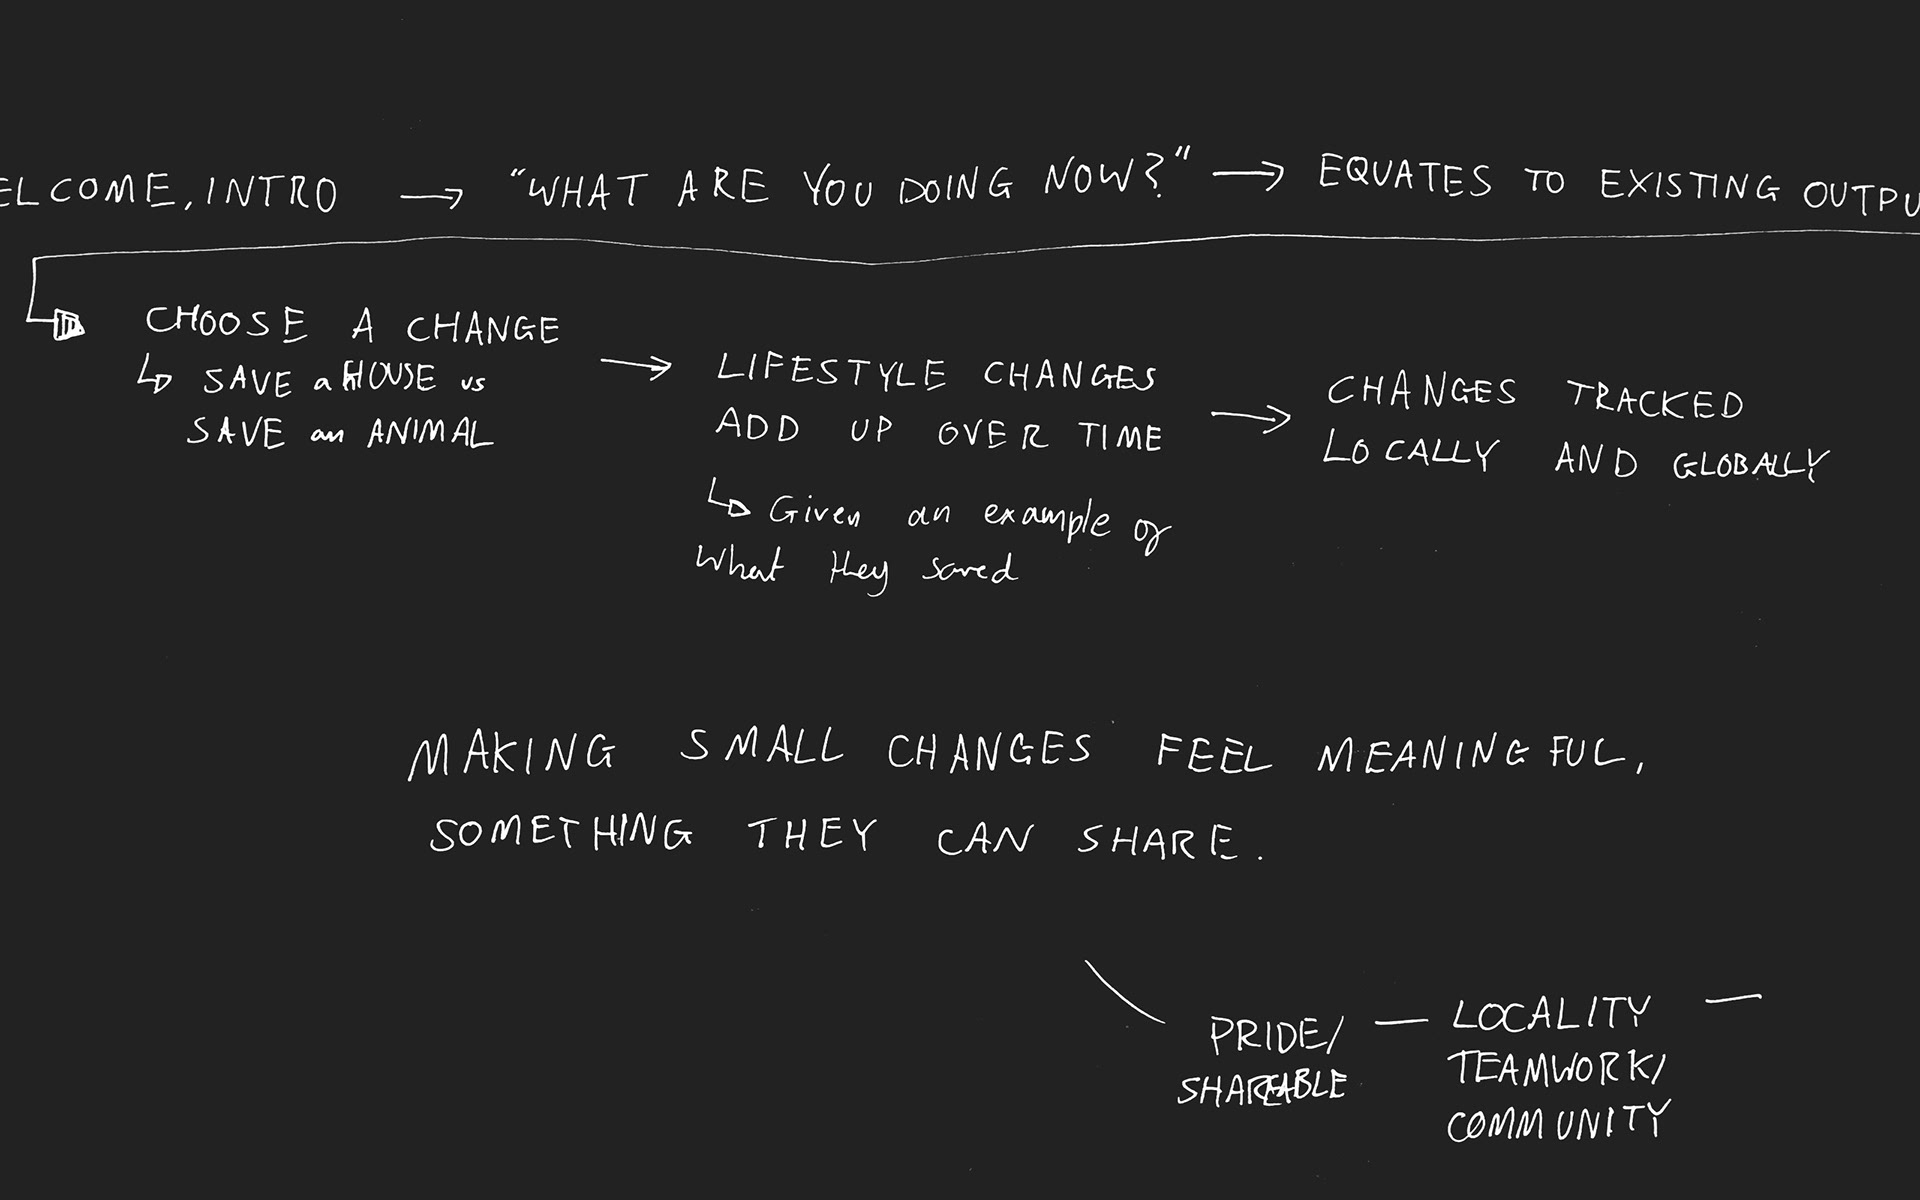 ELCOME, INTRO → "WHAT ARE YOU DOING NOW?" → EQUATES TO EXISTING OUTPU
CHOOSE A CHANGE
↳ SAVE a HOUSE vs
SAVE an ANIMAL
→ LIFESTYLE CHANGES
ADD UP OVER TIME
↳ Given an example of
what they saved
→ CHANGES TRACKED
LOCALLY AND GLOBALLY
MAKING SMALL CHANGES FEEL MEANINGFUL,
SOMETHING THEY CAN SHARE.
PRIDE/
SHAREABLE
— LOCALITY —
TEAMWORK/
COMMUNITY